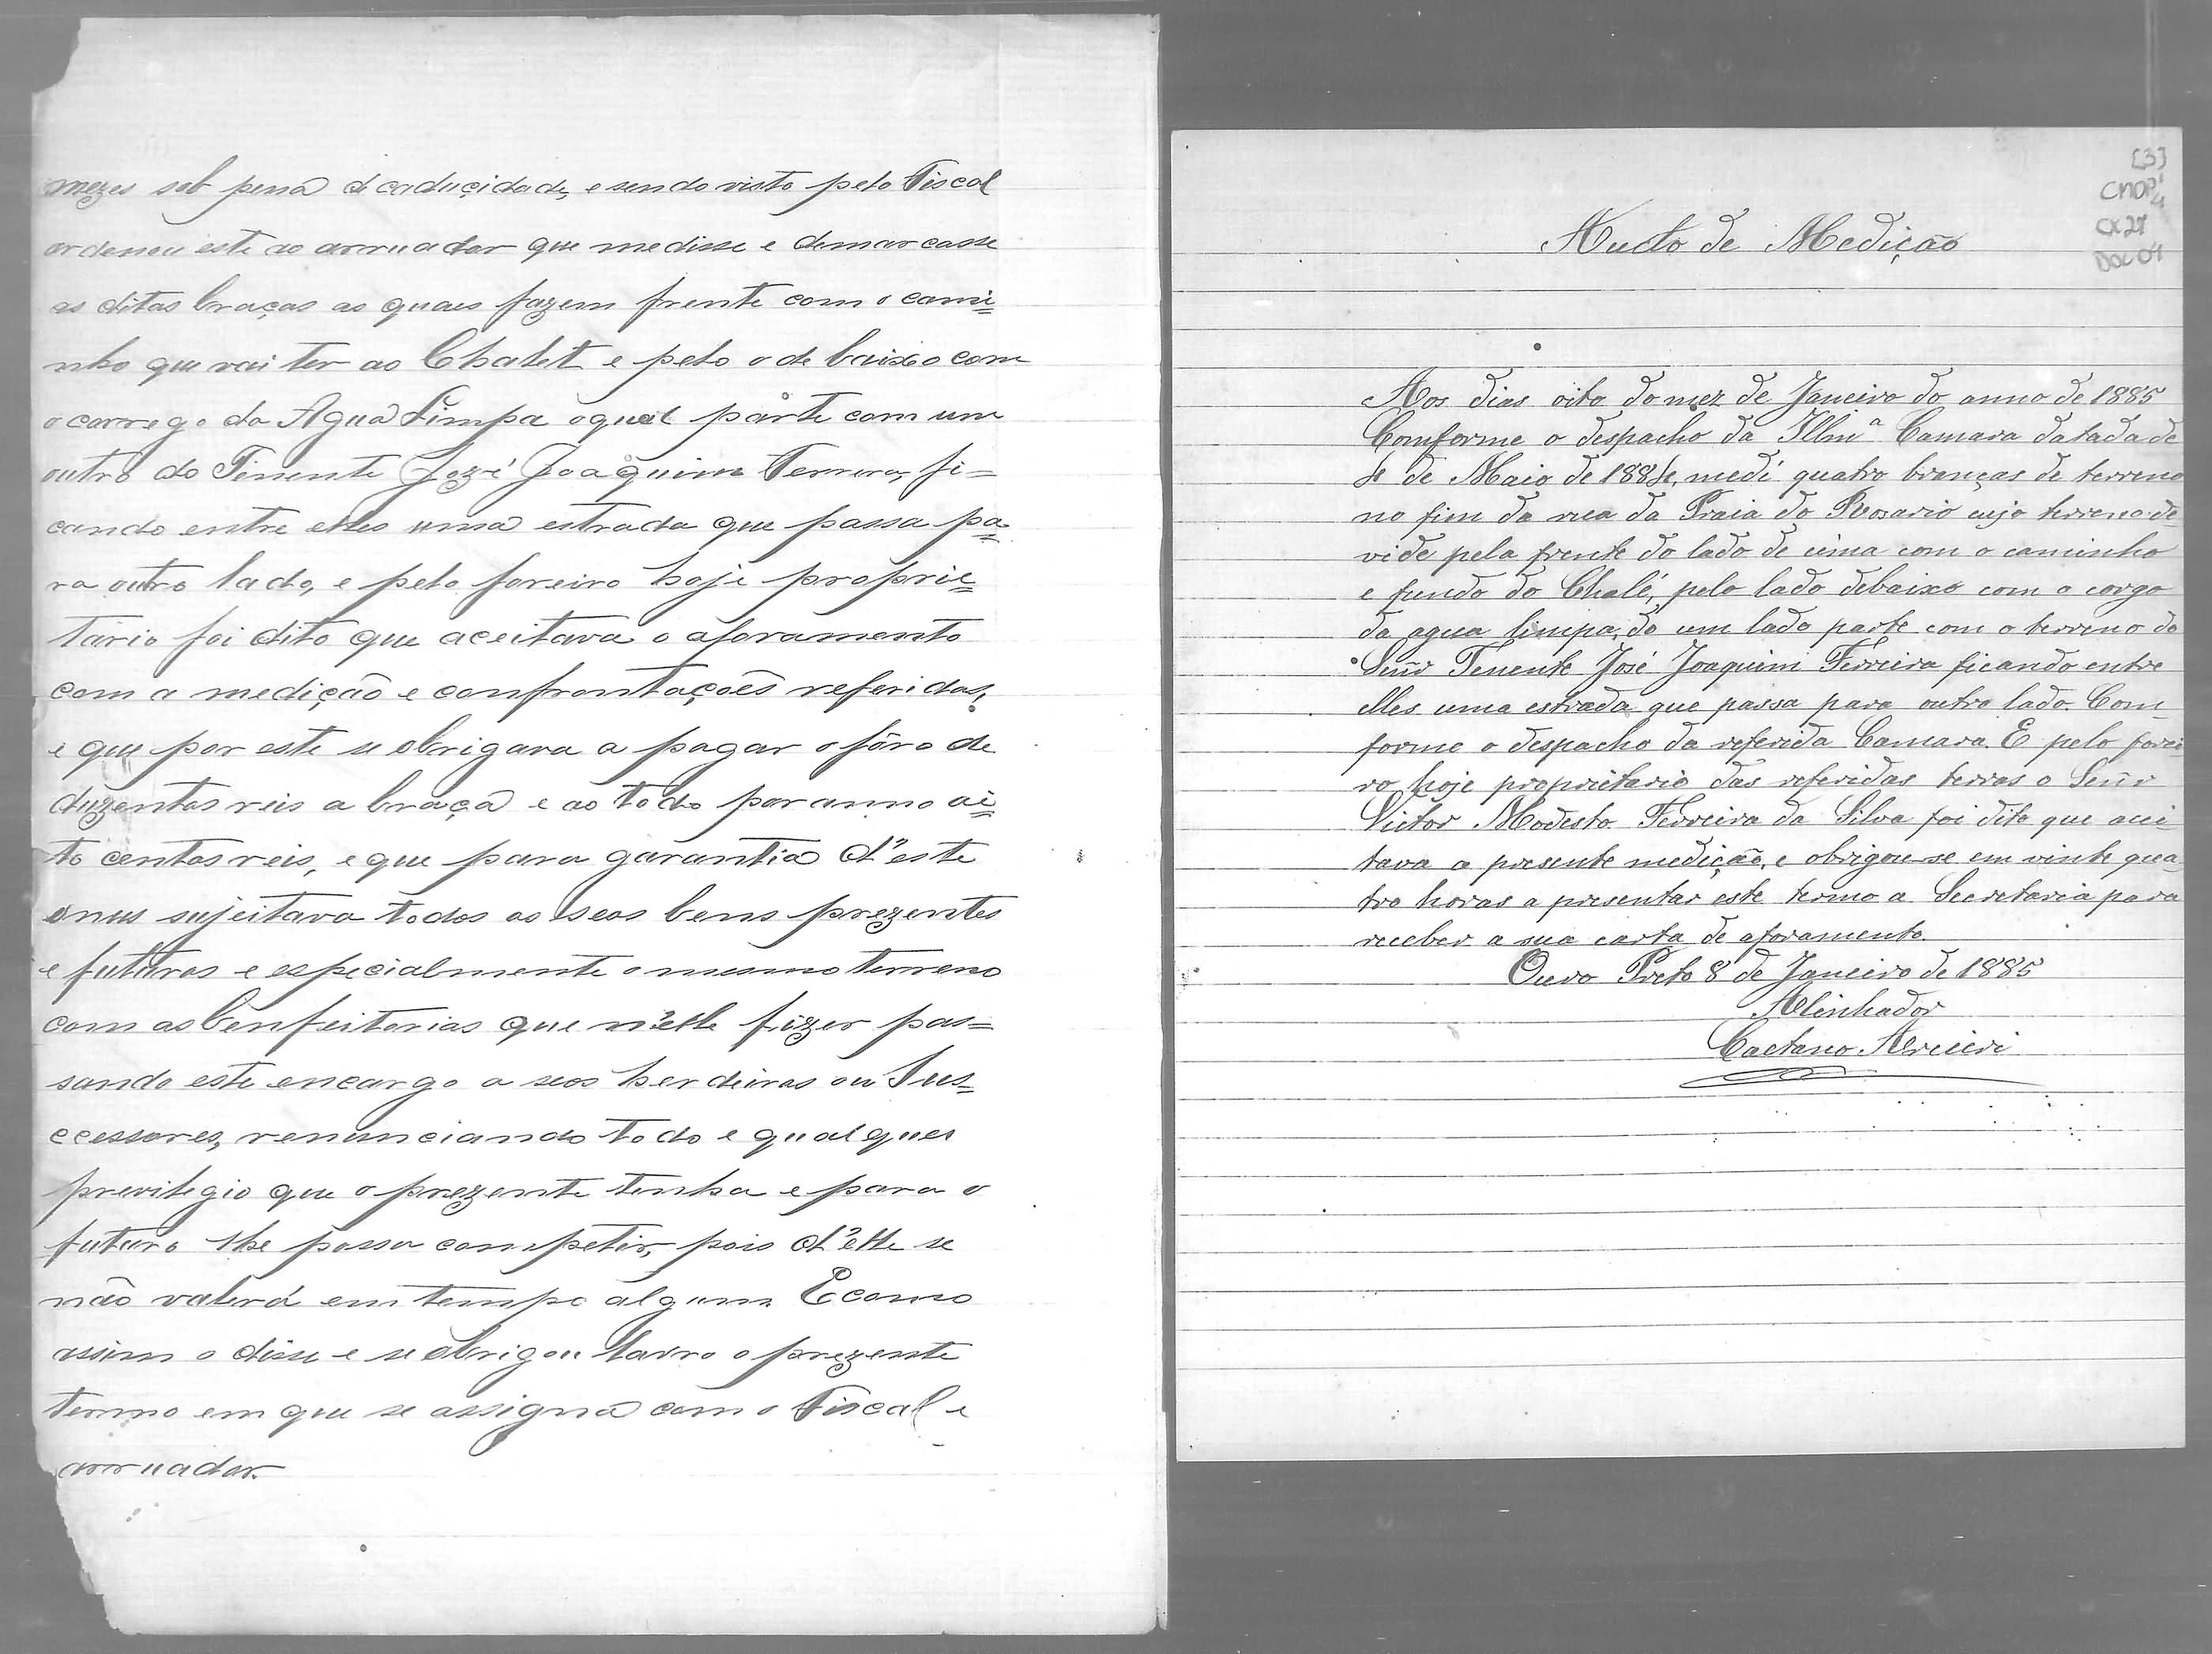 mezes sob pena de caducidade, e sendo visto pelo Fiscal
ordenou este ao arruador que medisse e demarcasse
as ditas braças as quaes fazem frente com o cami=
nho que vai ter ao Chalet e pelo o de baixo com
o corrego da Agua Limpa o qual parte com um
outro do Tenente Jozé Joaquim Ferreira, fi=
cando entre elles uma estrada que passa pa=
ra outro lado, e pelo foreiro hoje proprie=
tario foi dito que aceitava o aforamento
com a medição e confrontações referidas,
e que por este se obrigava a pagar o fôro de
duzentos reis a braça e ao todo por anno oi=
to centos reis, e que para garantia d'este
onus sujeitava todos os seos bens prezentes
e futuros e especialmente o mesmo terreno
com as benfeitorias que n'elle fizer pas=
sando este encargo a seos herdeiros ou Sus=
cessores, renunciando todo e qualquer
previlegio que o prezente tenha e para o
futuro lhe possa competir, pois d'elle se
não valerá em tempo algum. E como
assim o disse e se obrigou lavro o prezente
termo em que se assigna com o Fiscal e
arruador.
[3]
CMOP
CX 27
DOC 04
Aucto de Medição
Aos dias oito do mez de Janeiro do anno de 1885
Comforme o despacho da Illmª Camara datada de
4 de Maio de 1884, medi quatro branças de terreno
no fim da rua da Praia do Rosario cujo terreno de-
vide pela frente do lado de cima com o caminho
e fundo do Chalé, pelo lado debaixo com o corgo
da agua limpa, do um lado parte com o terreno do
Senr Tenente José Joaquim Ferreira ficando entre
elles uma estrada que passa para outro lado. Com-
forme o despacho da referida Camara. E pelo forei
ro hoje proprietario das referidas terras o Senr
Victor Modesto Ferreira da Silva foi dito que acei-
tava a presente medição, e obrigou-se em vinte qua-
tro horas a presentar este termo a Secretaria para
receber a sua carta de aforamento.
Ouro Preto 8 de Janeiro de 1885
Alinhador
Caetano